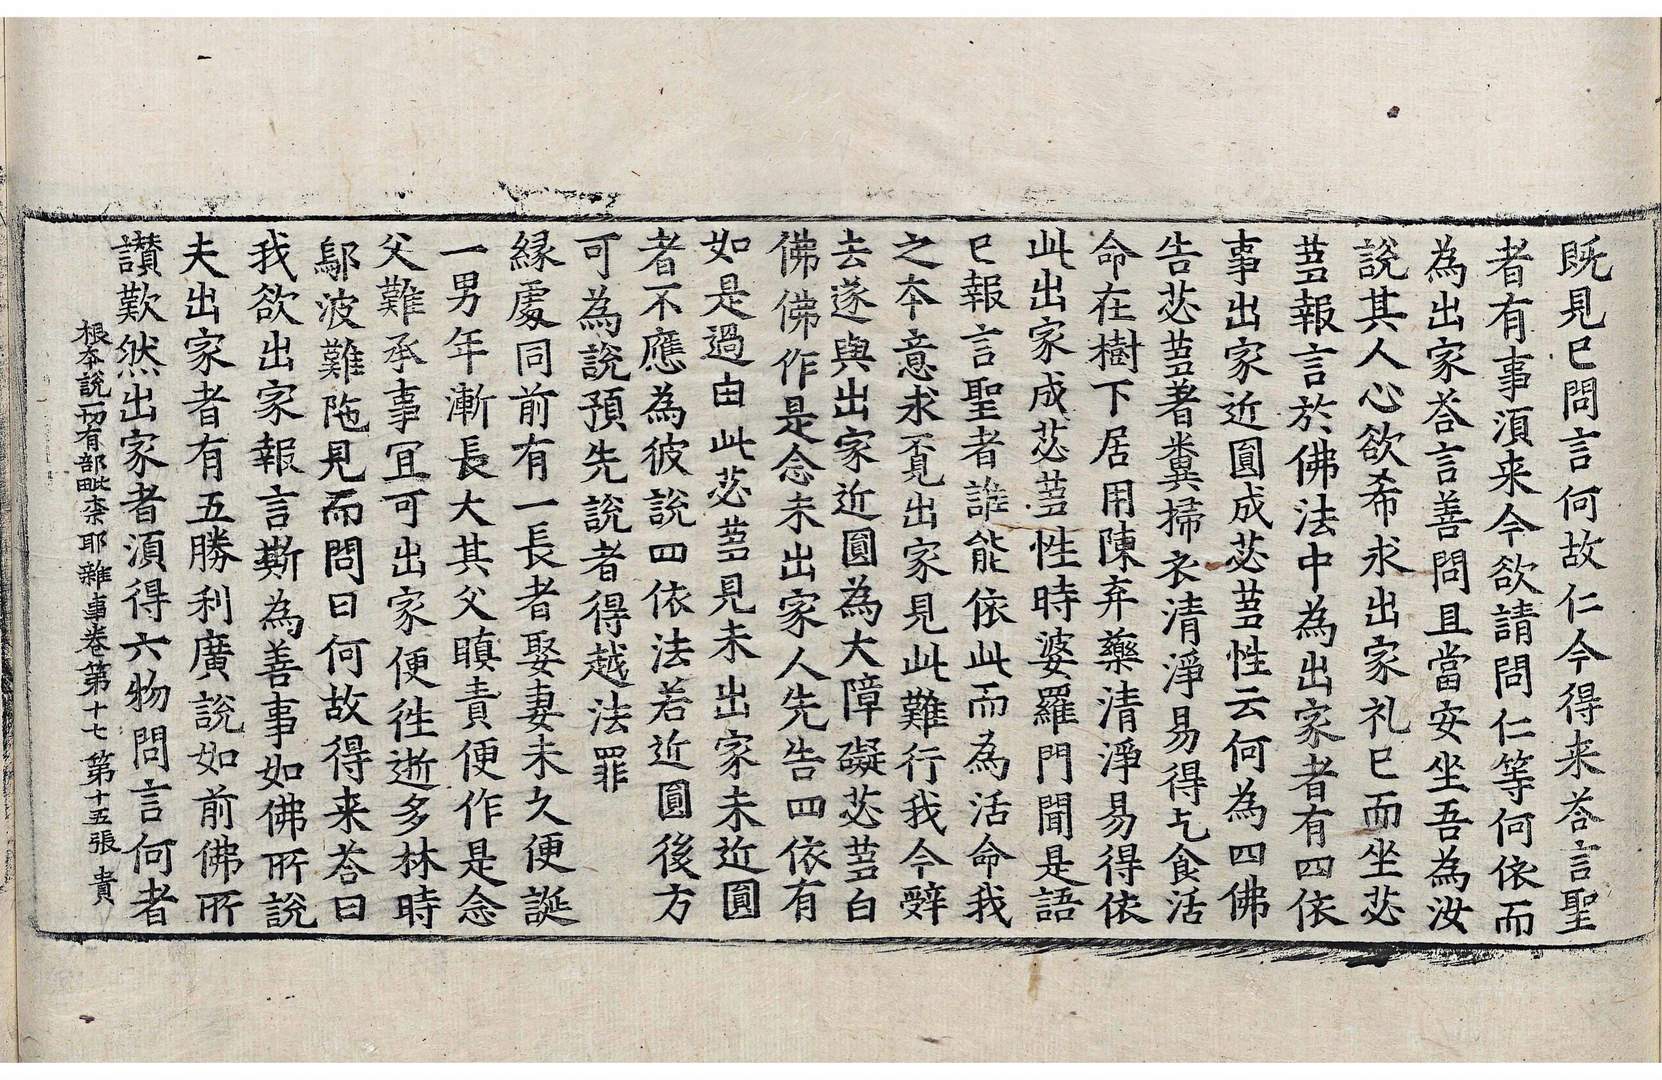 既見已問言何故仁今得来荅言聖
者有事湏来今欲請問仁等何依而
為出家荅言善問且當安坐吾為汝
說其人心欲希求出家礼已而坐苾
蒭報言於佛法中為出家者有四依
事出家近圓成苾蒭性云何為四佛
告苾蒭著糞掃衣清淨易得乞食活
命在樹下居用陳弃藥清淨易得依
此出家成苾蒭性時婆羅門聞是語
已報言聖者誰能依此而為活命我
之夲意求覔出家見此難行我今辝
去遂與出家近圓為大障礙苾蒭白
佛佛作是念未出家人先告四依有
如是過由此苾蒭見未出家未近圓
者不應為彼說四依法若近圓後方
可為說預先說者得越法罪
緣處同前有一長者娶妻未久便誕
一男年漸長大其父瞋責便作是念
父難承事冝可出家便徃逝多林時
鄔波難陁見而問曰何故得来荅曰
我欲出家報言斯為善事如佛所說
夫出家者有五勝利廣說如前佛所
讃歎然出家者湏得六物問言何者
根夲說一切有部毗柰耶雜事卷第十七 第十五張 貴